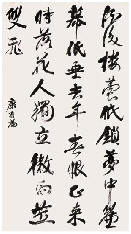 後樓臺鎖夢中簾
幕低垂去年春恨來
時落花人獨立微雨燕
雙飛
康有為